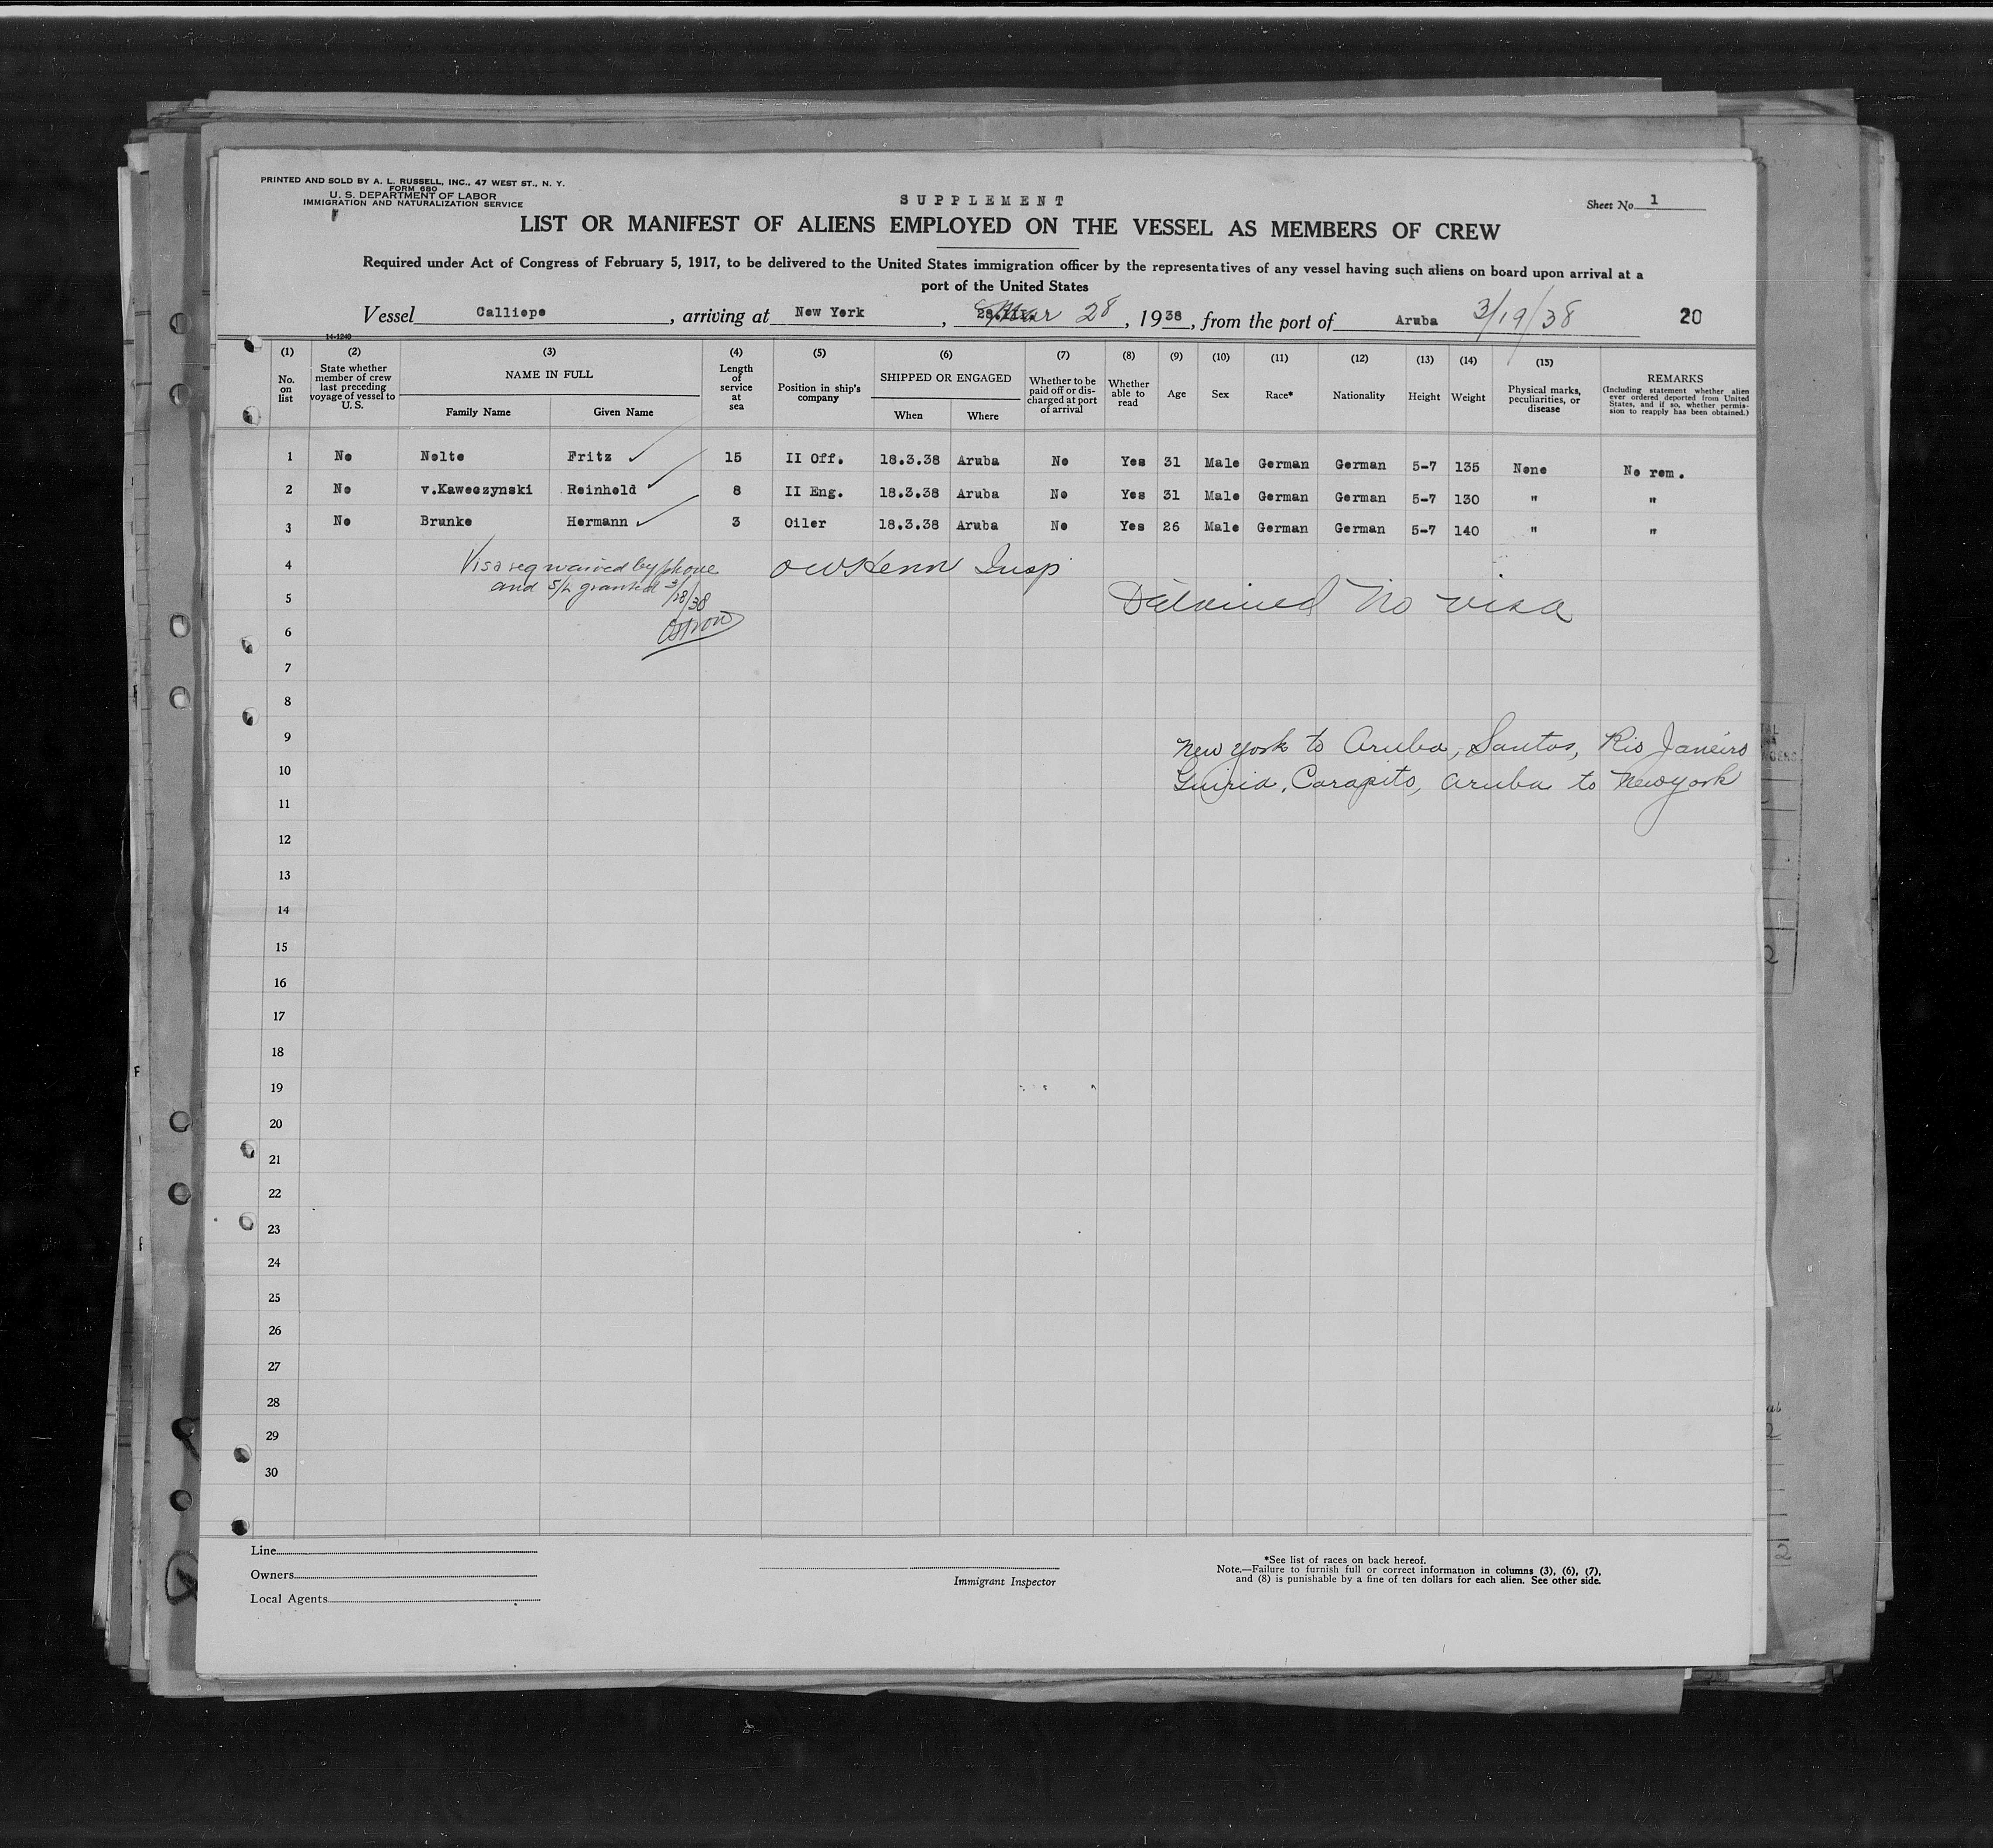 PRINTED AND SOLD BY A. L. RUSSELL, INC., 47 WEST ST., N. Y.
FORM 680
U. S. DEPARTMENT OF LABOR
IMMIGRATION AND NATURALIZATION SERVICE
SUPPLEMENT
Sheet No. 1
LIST OR MANIFEST OF ALIENS EMPLOYED ON THE VESSEL AS MEMBERS OF CREW
Required under Act of Congress of February 5, 1917, to be delivered to the United States immigration officer by the representatives of any vessel having such aliens on board upon arrival at a
port of the United States
Vessel Calliope, arriving at New York, Mar 28, 1938, from the port of Aruba 3/19/38 20
14-1240
(1) (2) (3) (4) (5) (6) (7) (8) (9) (10) (11) (12) (13) (14) (15)
No. on list
State whether member of crew last preceding voyage of vessel to U. S.
NAME IN FULL
Family Name Given Name
Length of service at sea
Position in ship's company
SHIPPED OR ENGAGED
When Where
Whether to be paid off or discharged at port of arrival
Whether able to read
Age Sex Race* Nationality Height Weight
Physical marks, peculiarities, or disease
REMARKS
(Including statement whether alien ever ordered deported from United States, and if so, whether permission to reapply has been obtained.)
1 No Nolte Fritz 15 II Off. 18.3.38 Aruba No Yes 31 Male German German 5-7 135 None No rem.
2 No v.Kaweczynski Reinhold 8 II Eng. 18.3.38 Aruba No Yes 31 Male German German 5-7 130 " "
3 No Brunke Hermann 3 Oiler 18.3.38 Aruba No Yes 26 Male German German 5-7 140 " "
4 Visa req waived by phone Insp
5 and S/L granted 3/28/38 Detained No visa
6
7
8
9 New York to Aruba, Santos, Rio Janeiro
10 Guiria, Carapito, Aruba to New York
11
12
13
14
15
16
17
18
19
20
21
22
23
24
25
26
27
28
29
30
Line
Owners
Local Agents
Immigrant Inspector
*See list of races on back hereof.
Note.—Failure to furnish full or correct information in columns (3), (6), (7),
and (8) is punishable by a fine of ten dollars for each alien. See other side.